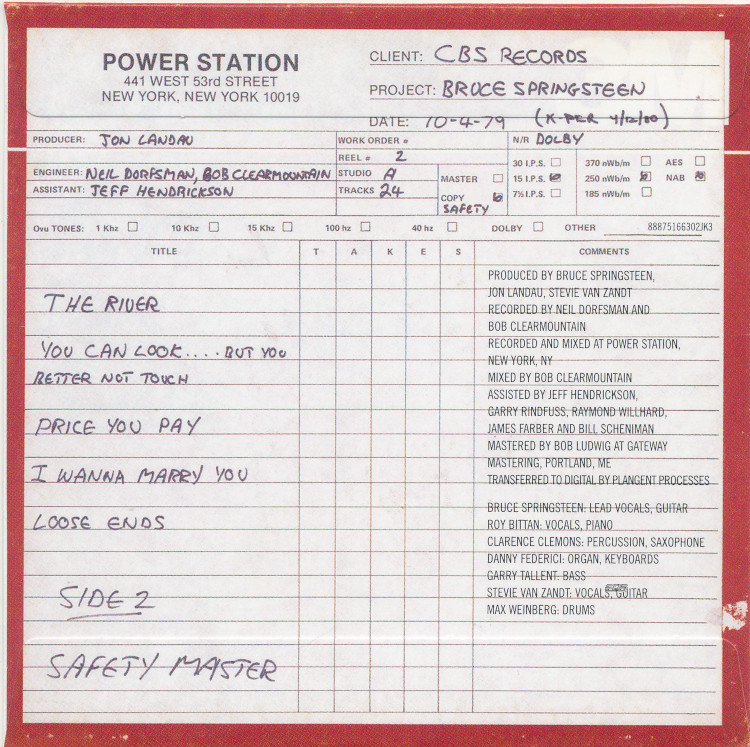 POWER STATION
441 WEST 53rd STREET
NEW YORK, NEW YORK 10019
CLIENT: CBS RECORDS
PROJECT: BRUCE SPRINGSTEEN
DATE: 10-4-79 (K-PER 4/12/80)
PRODUCER: JON LANDAU
ENGINEER: NEIL DORFSMAN, BOB CLEARMOUNTAIN
ASSISTANT: JEFF HENDRICKSON
WORK ORDER #
REEL # 2
STUDIO A
TRACKS 24
MASTER
COPY
SAFETY
N/R DOLBY
30 I.P.S.
15 I.P.S.
7½ I.P.S.
370 nWb/m
250 nWb/m
185 nWb/m
AES
NAB
Ovu TONES: 1 Khz 10 Khz 15 Khz 100 hz 40 hz DOLBY OTHER 88875166302JK3
TITLE T A K E S COMMENTS
THE RIVER
YOU CAN LOOK.... BUT YOU
BETTER NOT TOUCH
PRICE YOU PAY
I WANNA MARRY YOU
LOOSE ENDS
SIDE 2
SAFETY MASTER
PRODUCED BY BRUCE SPRINGSTEEN,
JON LANDAU, STEVIE VAN ZANDT
RECORDED BY NEIL DORFSMAN AND
BOB CLEARMOUNTAIN
RECORDED AND MIXED AT POWER STATION,
NEW YORK, NY
MIXED BY BOB CLEARMOUNTAIN
ASSISTED BY JEFF HENDRICKSON,
GARRY RINDFUSS, RAYMOND WILLHARD,
JAMES FARBER AND BILL SCHENIMAN
MASTERED BY BOB LUDWIG AT GATEWAY
MASTERING, PORTLAND, ME
TRANSFERRED TO DIGITAL BY PLANGENT PROCESSES
BRUCE SPRINGSTEEN: LEAD VOCALS, GUITAR
ROY BITTAN: VOCALS, PIANO
CLARENCE CLEMONS: PERCUSSION, SAXOPHONE
DANNY FEDERICI: ORGAN, KEYBOARDS
GARRY TALLENT: BASS
STEVIE VAN ZANDT: VOCALS, GUITAR
MAX WEINBERG: DRUMS